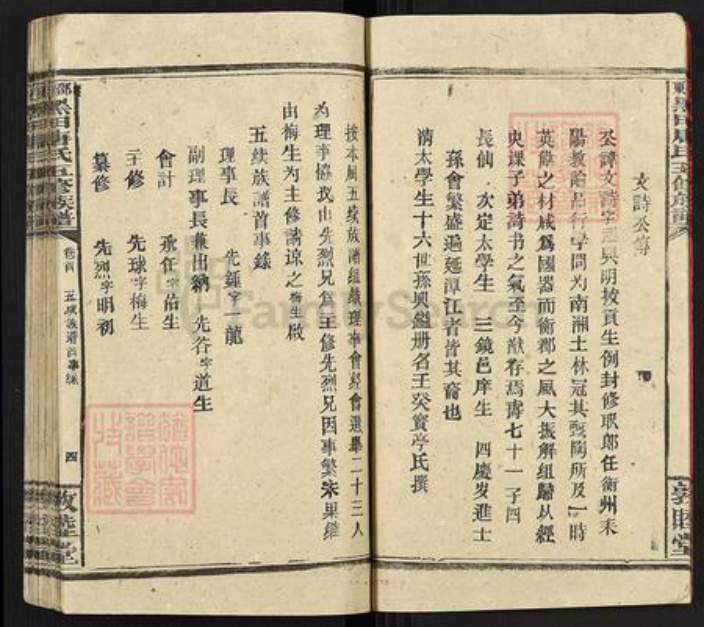 文詩公傳
公諱文詩字興明拔貢生例封修職郎任衡州耒
陽教諭品行學問为南湘土林冠其甄陶所及一時
英偉之材咸爲國器而衡郡之風大振解组歸从經
史課子弟詩书之氣至今猷存焉壽七十一子四
長仙 次定太學生 三鏡邑庠生 四慶岁進士
孫會繁盛遍延潭江者皆其裔也
清太學生十六世孫興鎰册名王癸寶亭氏撰
按本届五续族譜组織理事會經會選舉二十三人
为理事協議由先烈兄爲主修先烈兄因事繁未果继
由梅生为主修請谅之梅生啟
五续族譜首事錄
理事長 先鍾字一龍
副理事長兼出納 先谷字道生
會計 承任字佑生
主修 先球字梅生
纂修 先烈字明初
黑田唐氏五修族譜
卷首
五续族譜首事錄
四
敦睦堂
FamilySearch